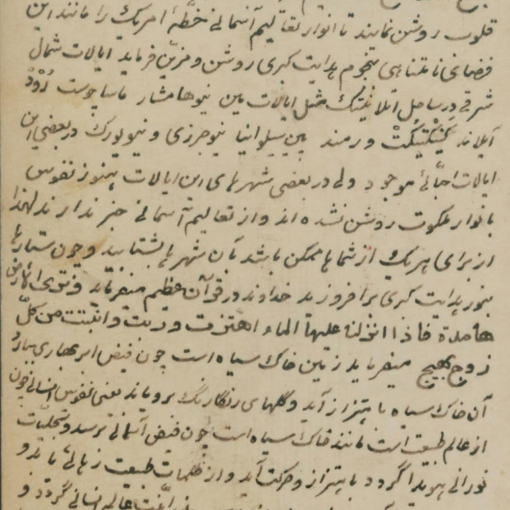 قلوب روشن نمایند تا انوار تعالیم آسمانی خطّهٔ امریک را مانند این
فضای نامتناهی بنجوم هدایت کبری روشن و مزیّن فرماید ایالات شمال
شرقی در ساحل اتلانتیک مثل ایالات مین نیوهامشار ماساچوست رُوْدْ
آیلاند کَنِتیکت ورمند پنسیلوانیا نیوجرزی و نیویورک در بعضی این
ایالات احبّائی موجود ولی در بعضی شهرهای این ایالات هنوز نفوس
بانوار ملکوت روشن نشده‌اند و از تعالیم آسمانی خبر ندارند لهذا
از برای هر یک از شماها ممکن باشد بآن شهرها بشتابید و چون ستارها
بنور هدایت کبری برافروزید خداوند در قرآن عظیم میفرماید و تری الأرض
هامدة فاذا انزلنا علیها الماء اهتزت و ربت و انبتت من کلّ
زوج بهیج میفرماید زمین خاک سیاه است چون فیض ابر بهاری ببارد
آن خاک سیاه باهتزاز آید و گلهای رنگارنگ برویاند یعنی نفوس انسانی چون
از عالم طبیعت است مانند خاک سیاه است چون فیض آسمانی برسد و تجلیّات
نورانی هویدا گردد باهتزاز و حرکت آید و از ظلمات طبیعت رهائی یابد و
انسانی گردد و